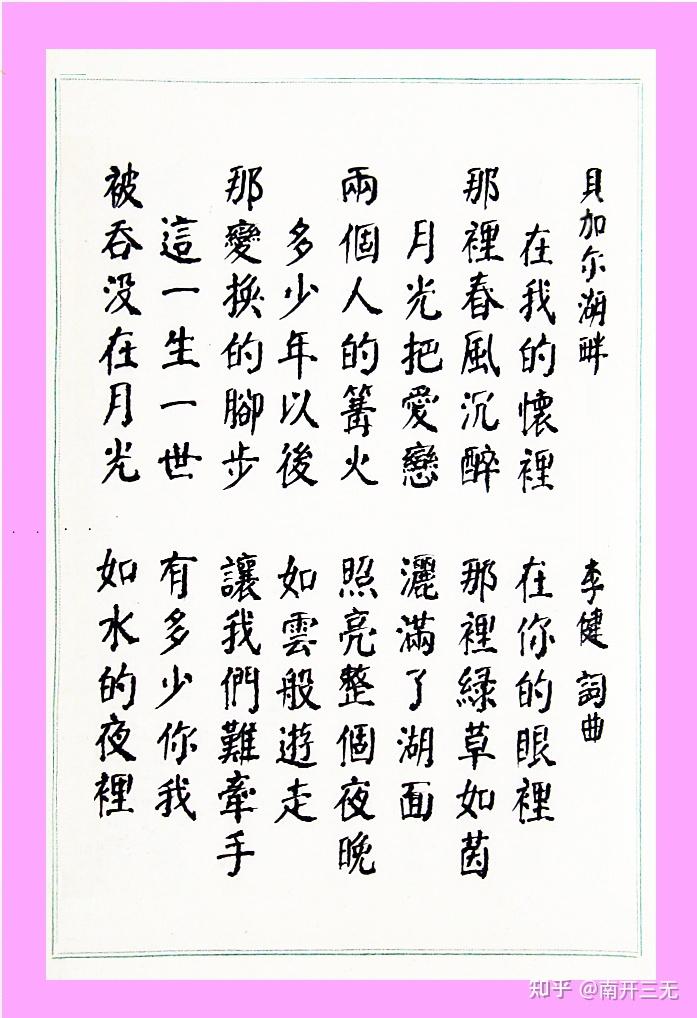 貝加尔湖畔 李健 詞曲
在我的懷裡 在你的眼裡
那裡春風沉醉 那裡緑草如茵
月光把愛戀 灑滿了湖面
兩個人的篝火 照亮整個夜晚
多少年以後 如雲般遊走
那變換的腳步 讓我們難牽手
這一生一世 有多少你我
被吞没在月光 如水的夜裡
知乎 @南开三无